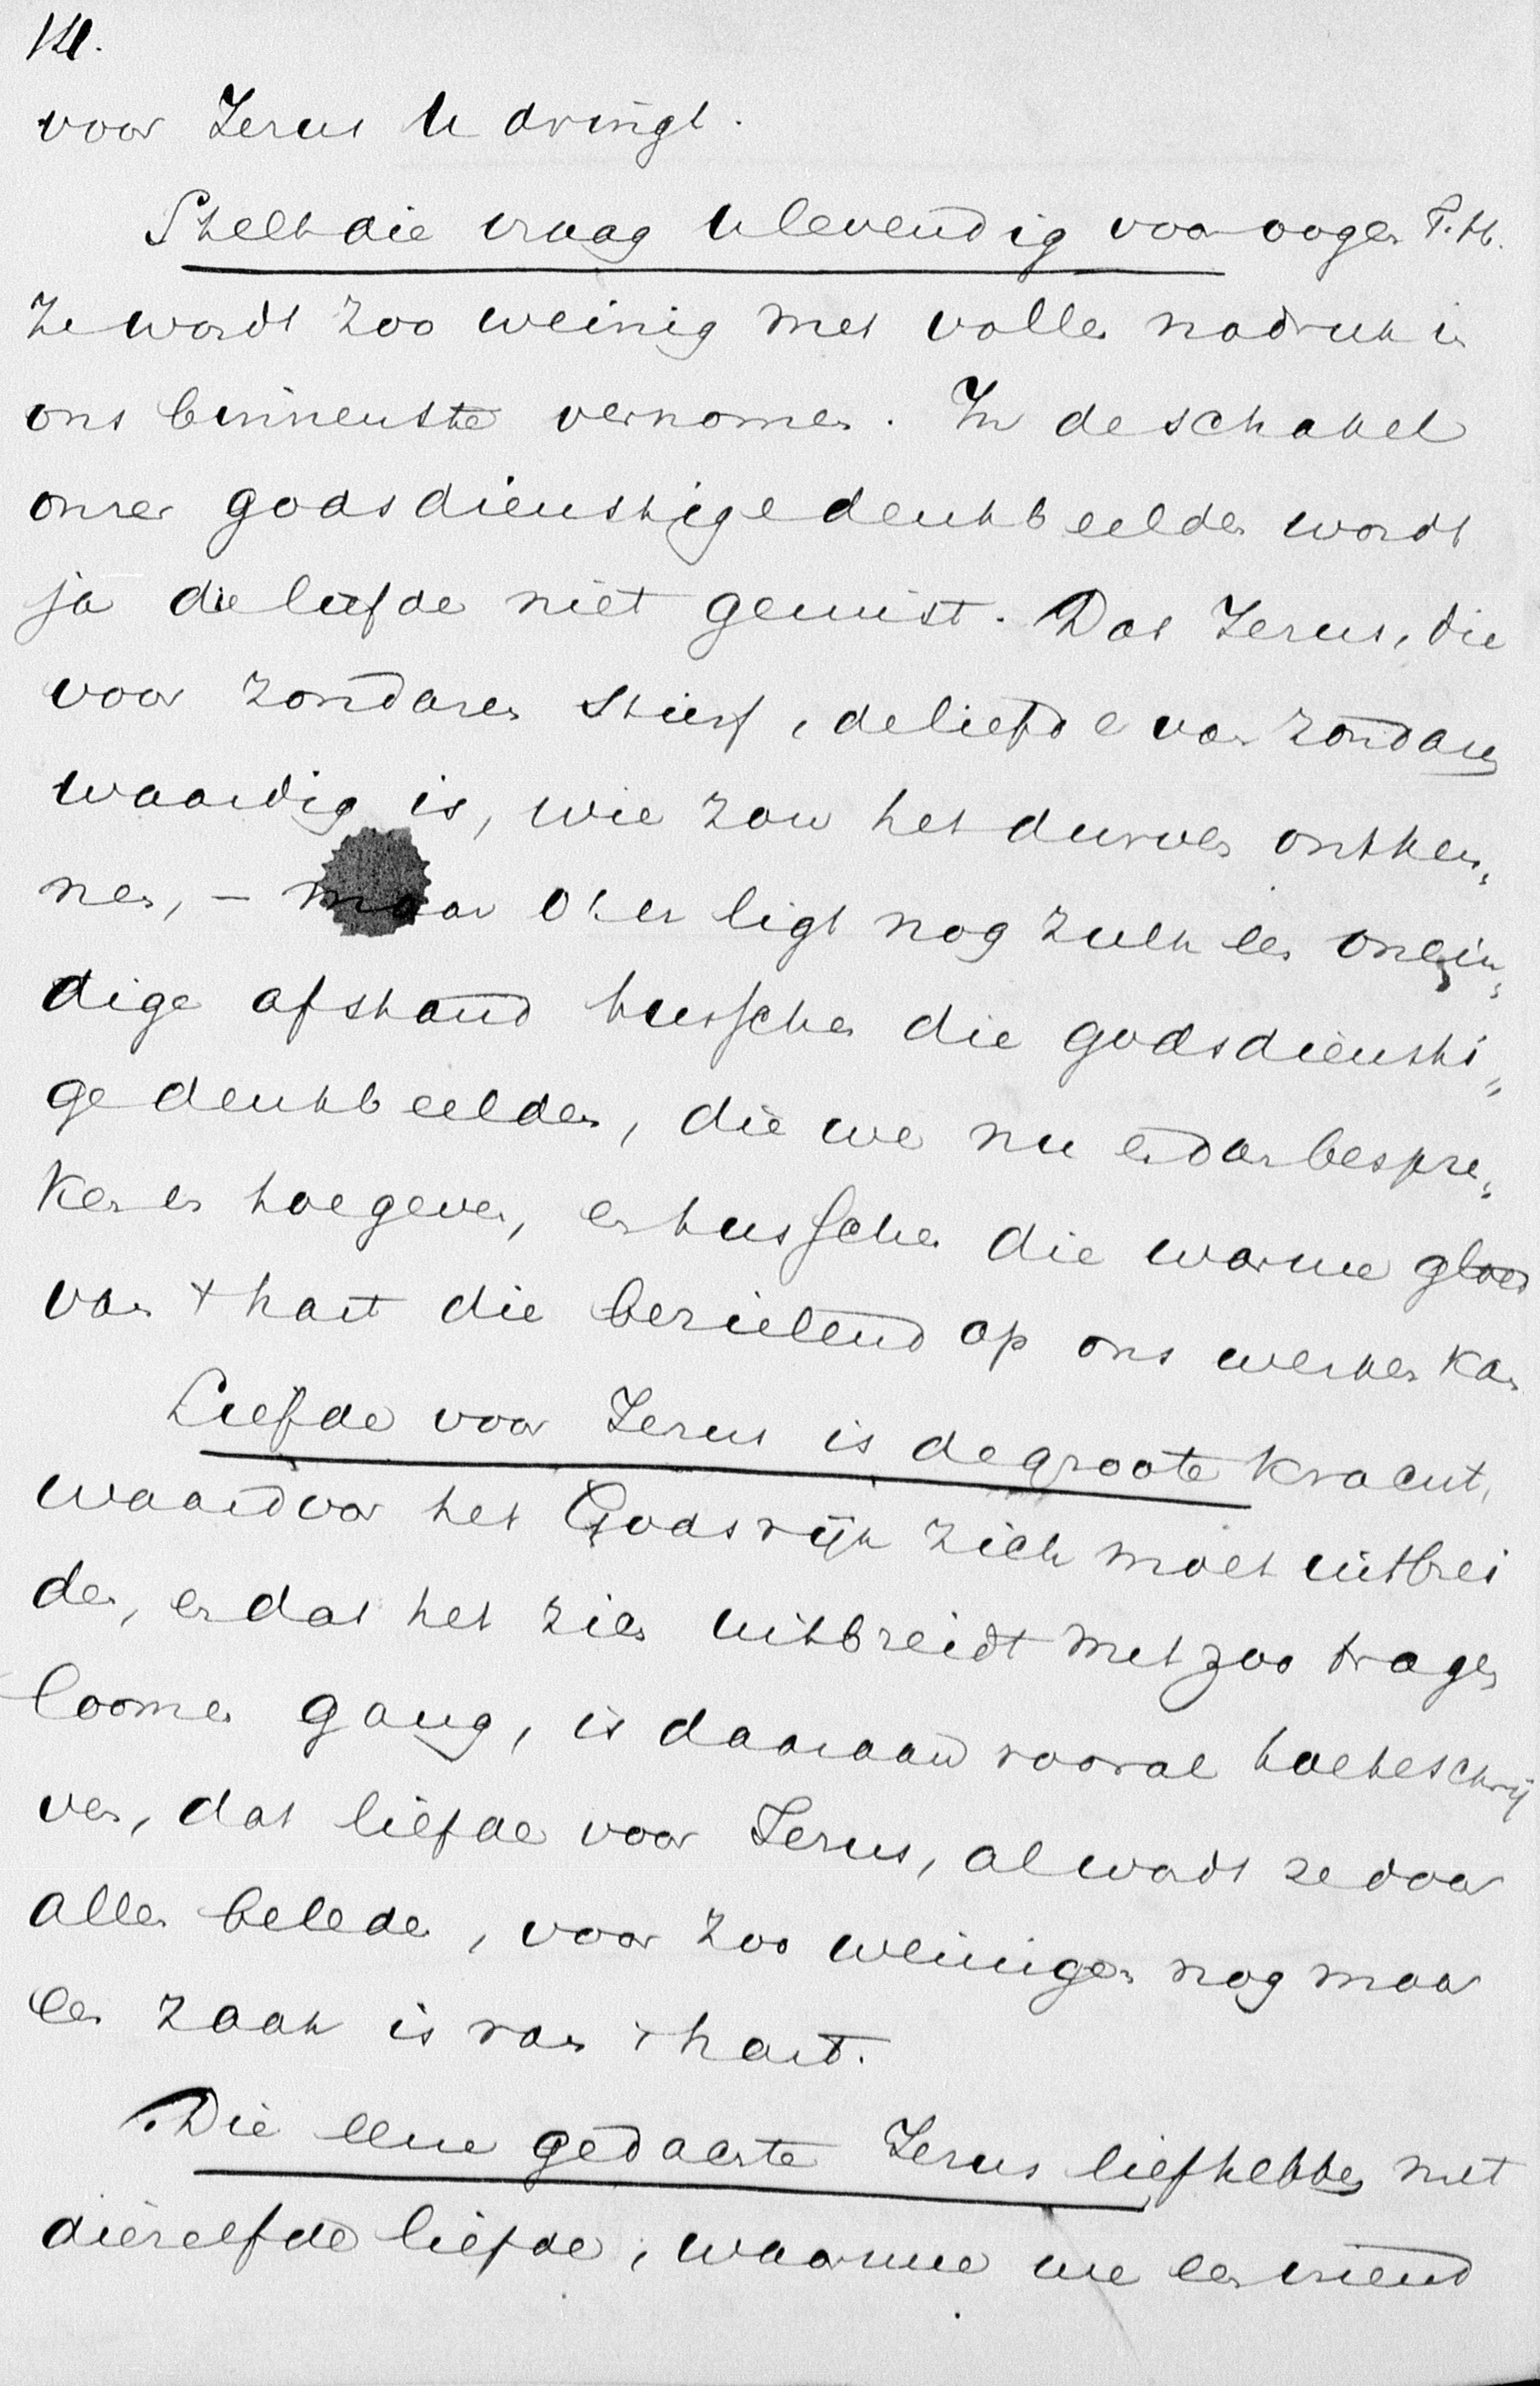 14.
voor Jezus U dringt.
Stelt die vraag U levendig voor oogen T. H.
Ze wordt zoo weinig met vollen nadruk in
ons binnenste vernomen. In de schakel
onzer godsdienstige denkbeelden wordt
ja die liefde niet gemist. Dat Jezus, die
voor zondaren stierf, de liefde van zondaren
waardig is, wie zou het durven ontken„
nen, – maar O! er ligt nog zulk een onein„
dige afstand tusschen die godsdiensti„
ge denkbeelden, die we nu en dan bespre„
ken en toegeven, en tusschen die warme gloed
van 't hart die bezielend op ons werken kan
Liefde voor Jezus is de groote kracht,
waardoor het Godsrijk zich moet uitbrei
den, en dat het zich uitbreidt met zoo tragen
loomen gang, is daaraan vooral toeteschrij
ven, dat liefde voor Jezus, al wordt ze door
allen beleden, voor zoo weinigen nog maar
een zaak is van 't hart.
Die eene gedachte Jezus liefhebben met
diezelfde liefde, waarmee we een vriend